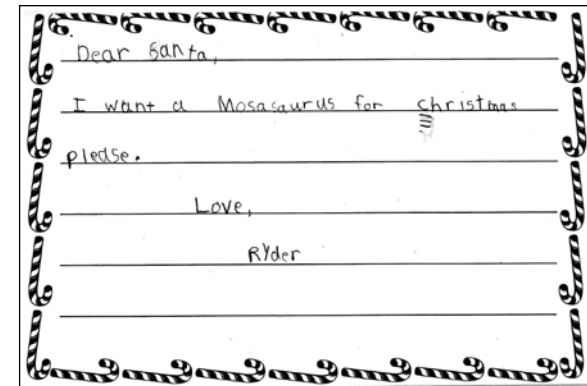 Dear Santa,
I want a Mosasaurus for christmas
please.
Love,
RYder